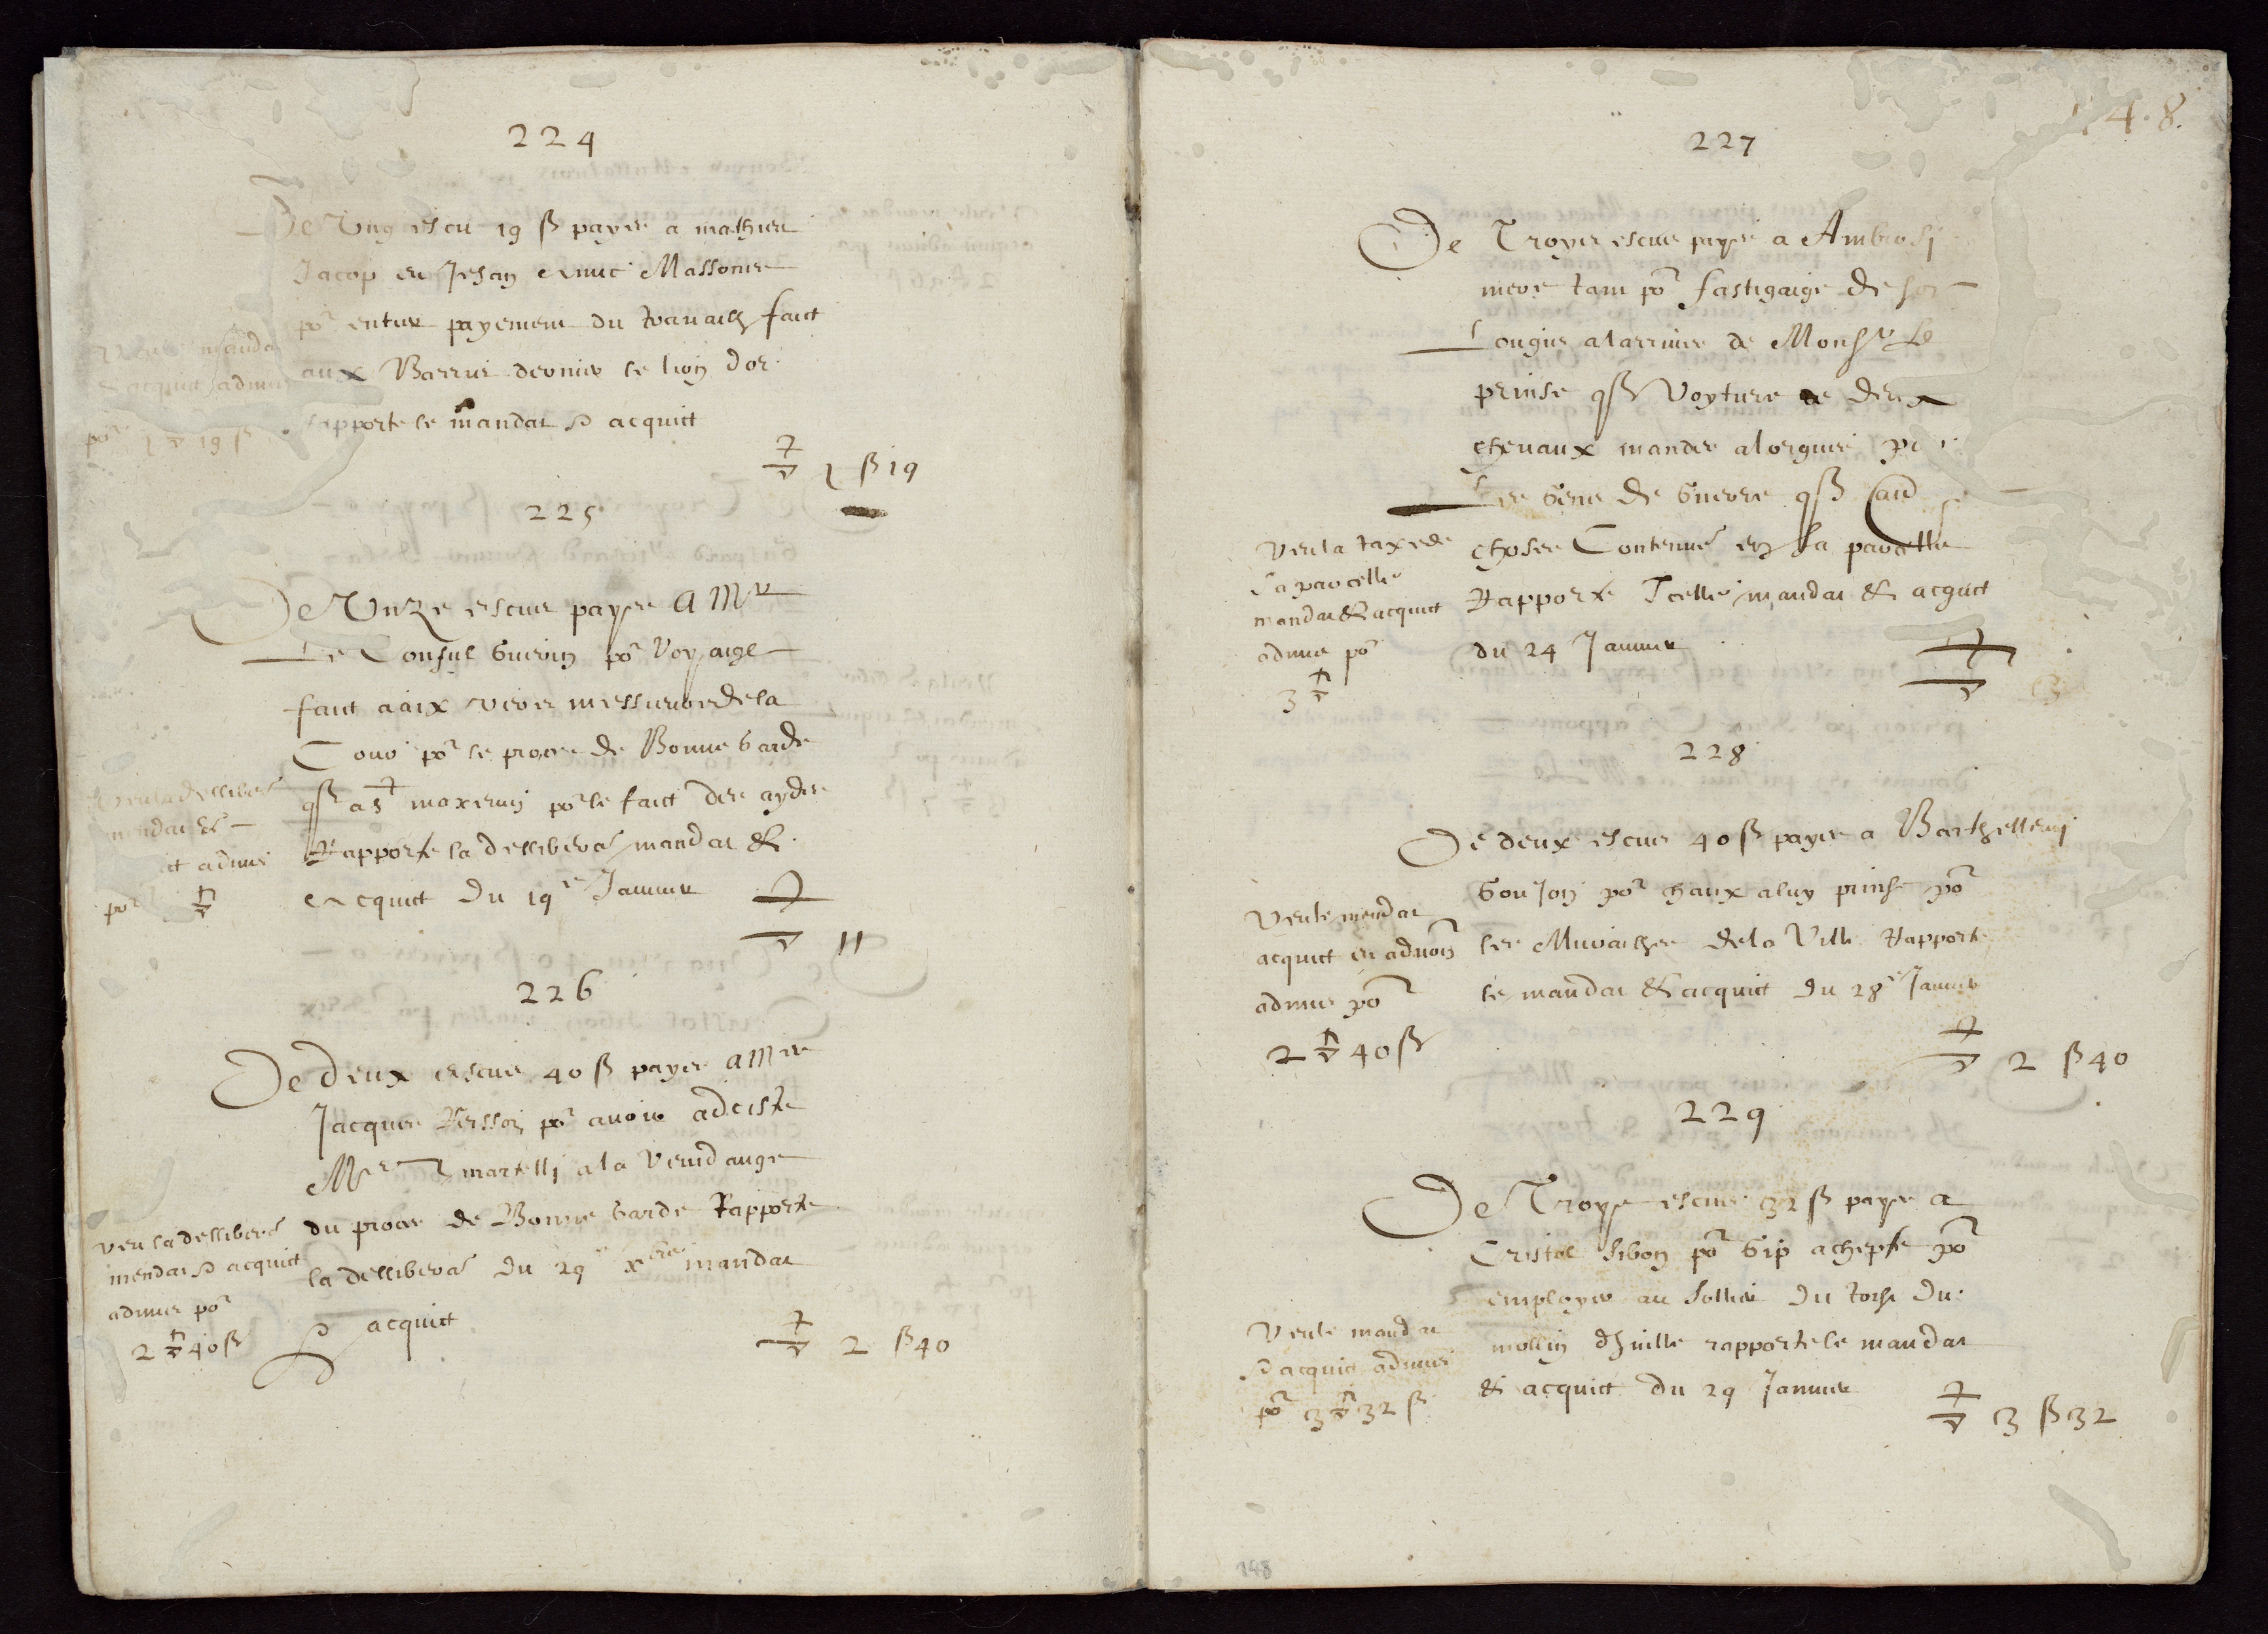 224
De Ung escu 19 ß payes a mathieu
Jacop et Jehan Massons
por entier payement du travailh faict
aux Barris devivier le lion dor
rapporte le mandat & acquict
1 ß 19
mandat
& acquict admis
por 1 19 ß
225
De Unze escus payes a Mr
Le Consul Guerin por Voyaige
faict a aix vers messieurs de la
Court por le proces de Bonne Garde
a St maxemin por le faict des aydes
Rapporte la dellibera mandat &
acquict du 19e Janvier
11
Veu la dellibera
mandat &
admis
por
226
De deux escus 40 ß payes a Mre
Jacques por avoir adciste
Mr martelli a la Veuidange
du proces de Bonne Garde Rapporte
la dellibera du 29 xbre mandat
& acquict
2 ß 40
Veu la dellibera
mendat & acquict
admis por
2 40 ß
148
227
De Troyes escus payes a Ambrosi
meve tant por fastigaige de son
Lougis a larrivee de Monsr Le
prinse Voyture de deux
chevaux mandes a lorgues
les Gens de Guerre
choses Contenues en la parcelle
Rapporte Icelle mandat & acquict
du 24 Janvier
3
Veu la taxe de
la parcelle
mandat & acquict
admis por
3
228
De deux escus 40 ß payes a Barthellemi
Goujon por chaux a luy prinse por
les Murailhes de la Ville Rapporte
le mandat & acquict du 28e Janvier
2 ß 40
Veu le mendat
acquict et
admis por
2 40 ß
229
De Troys escus 32 ß payes a
Cristol Sibon por Gip achepte por
employer au sollier du du
mollin dhuille rapporte le mandat
& acquict du 29 Janvier
3 ß 32
Veu le mandat
& acquict admis
por 3 32 ß
148